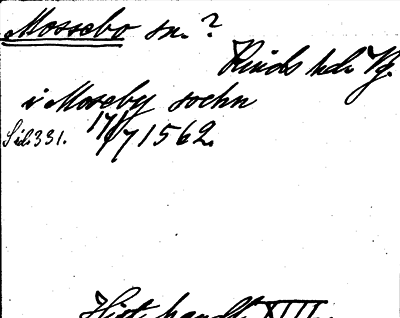 Mossebo sn. ?
Kinds hd. Vg.
i Moseby sochn
17/7 1562.
Sid. 331.
Hist. handl. XIII.